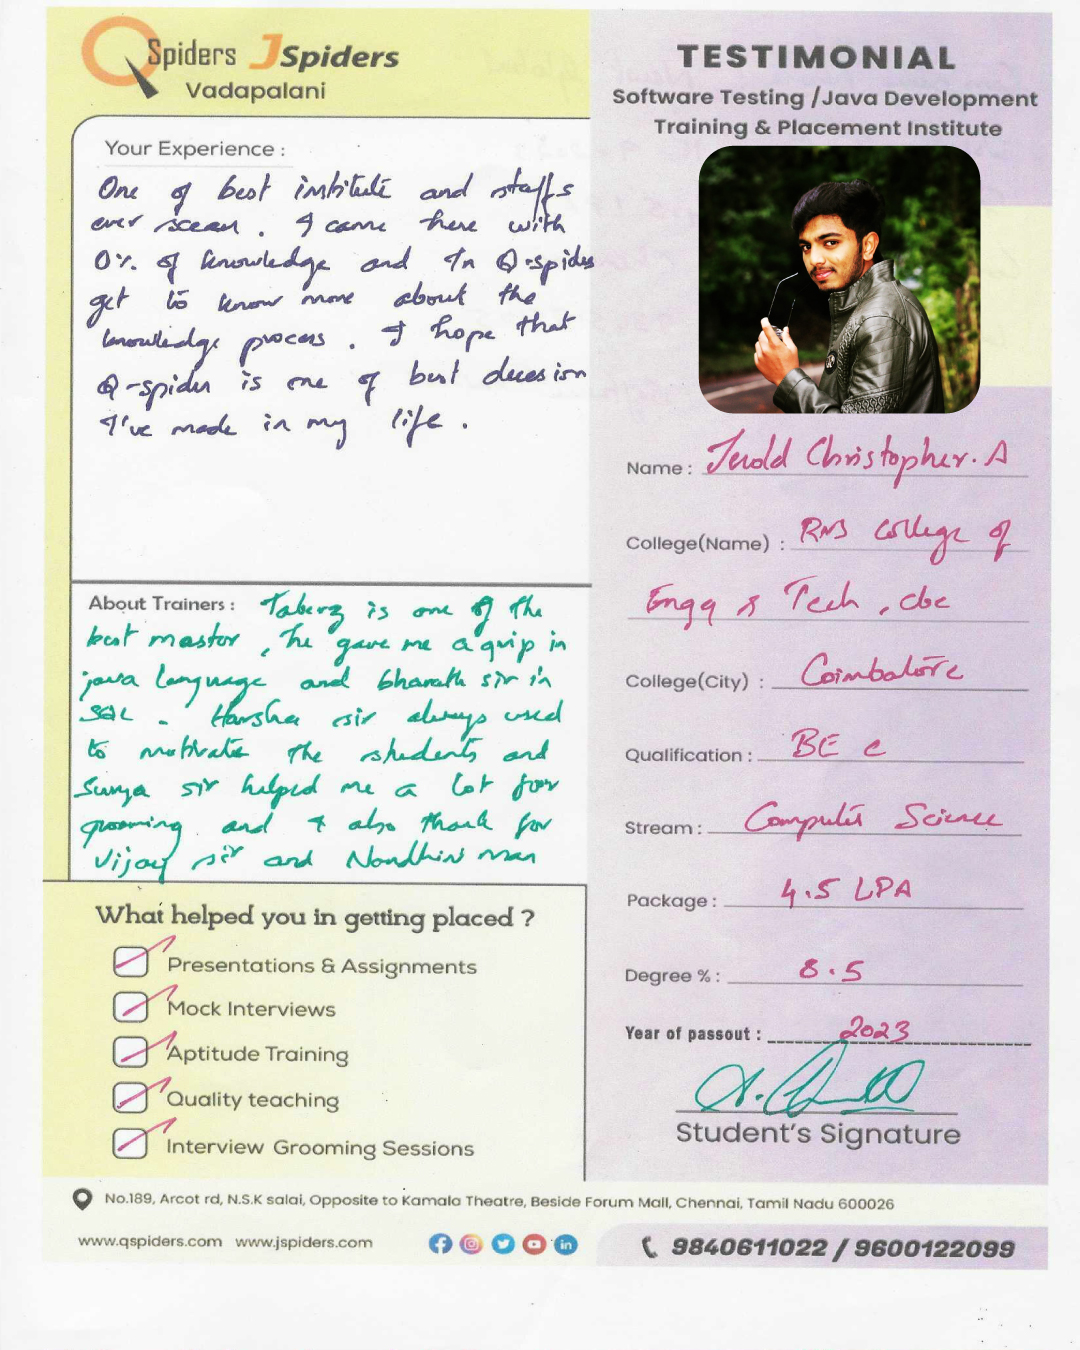 QSpiders JSpiders
Vadapalani
TESTIMONIAL
Software Testing /Java Development
Training & Placement Institute
Your Experience :
One of best institute and staffs
ever scean. I came here with
0%. of knowledge and In Q-spiders
get to know more about the
knowledge process. I hope that
Q-spider is one of best decesion
I've made in my life.
About Trainers : Taberz is one of the
best mastor, he gave me a grip in
java language and bharath sir in
SQL. Harsha sir always used
to motivate the students and
Surya sir helped me a lot for
grooming and I also thank for
Vijay sir and Nandhini mam
What helped you in getting placed ?
Presentations & Assignments
Mock Interviews
Aptitude Training
Quality teaching
Interview Grooming Sessions
Name : Jerold Christopher. A
College(Name) : College of
Engg & Tech, cbe
College(City) : Coimbatore
Qualification : BE
Stream : Computer Science
Package : 4.5 LPA
Degree % : 8.5
Year of passout : 2023
Student's Signature
No.189, Arcot rd, N.S.K salai, Opposite to Kamala Theatre, Beside Forum Mall, Chennai, Tamil Nadu 600026
www.qspiders.com www.jspiders.com
9840611022 / 9600122099